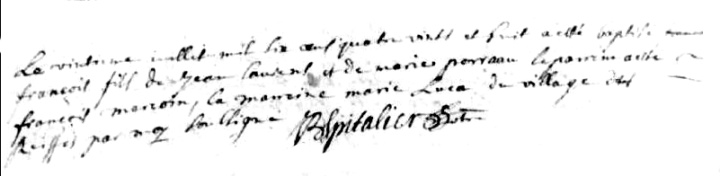 Le vintieme juillet mil six cens quatre vints et huit a esté baptisé
françois fils de Jean laurent et de marie porraau le parrein a esté
françois marcoin, la marreine marie Luca du village des
Reiffes par moy soubsigné Rspitalier